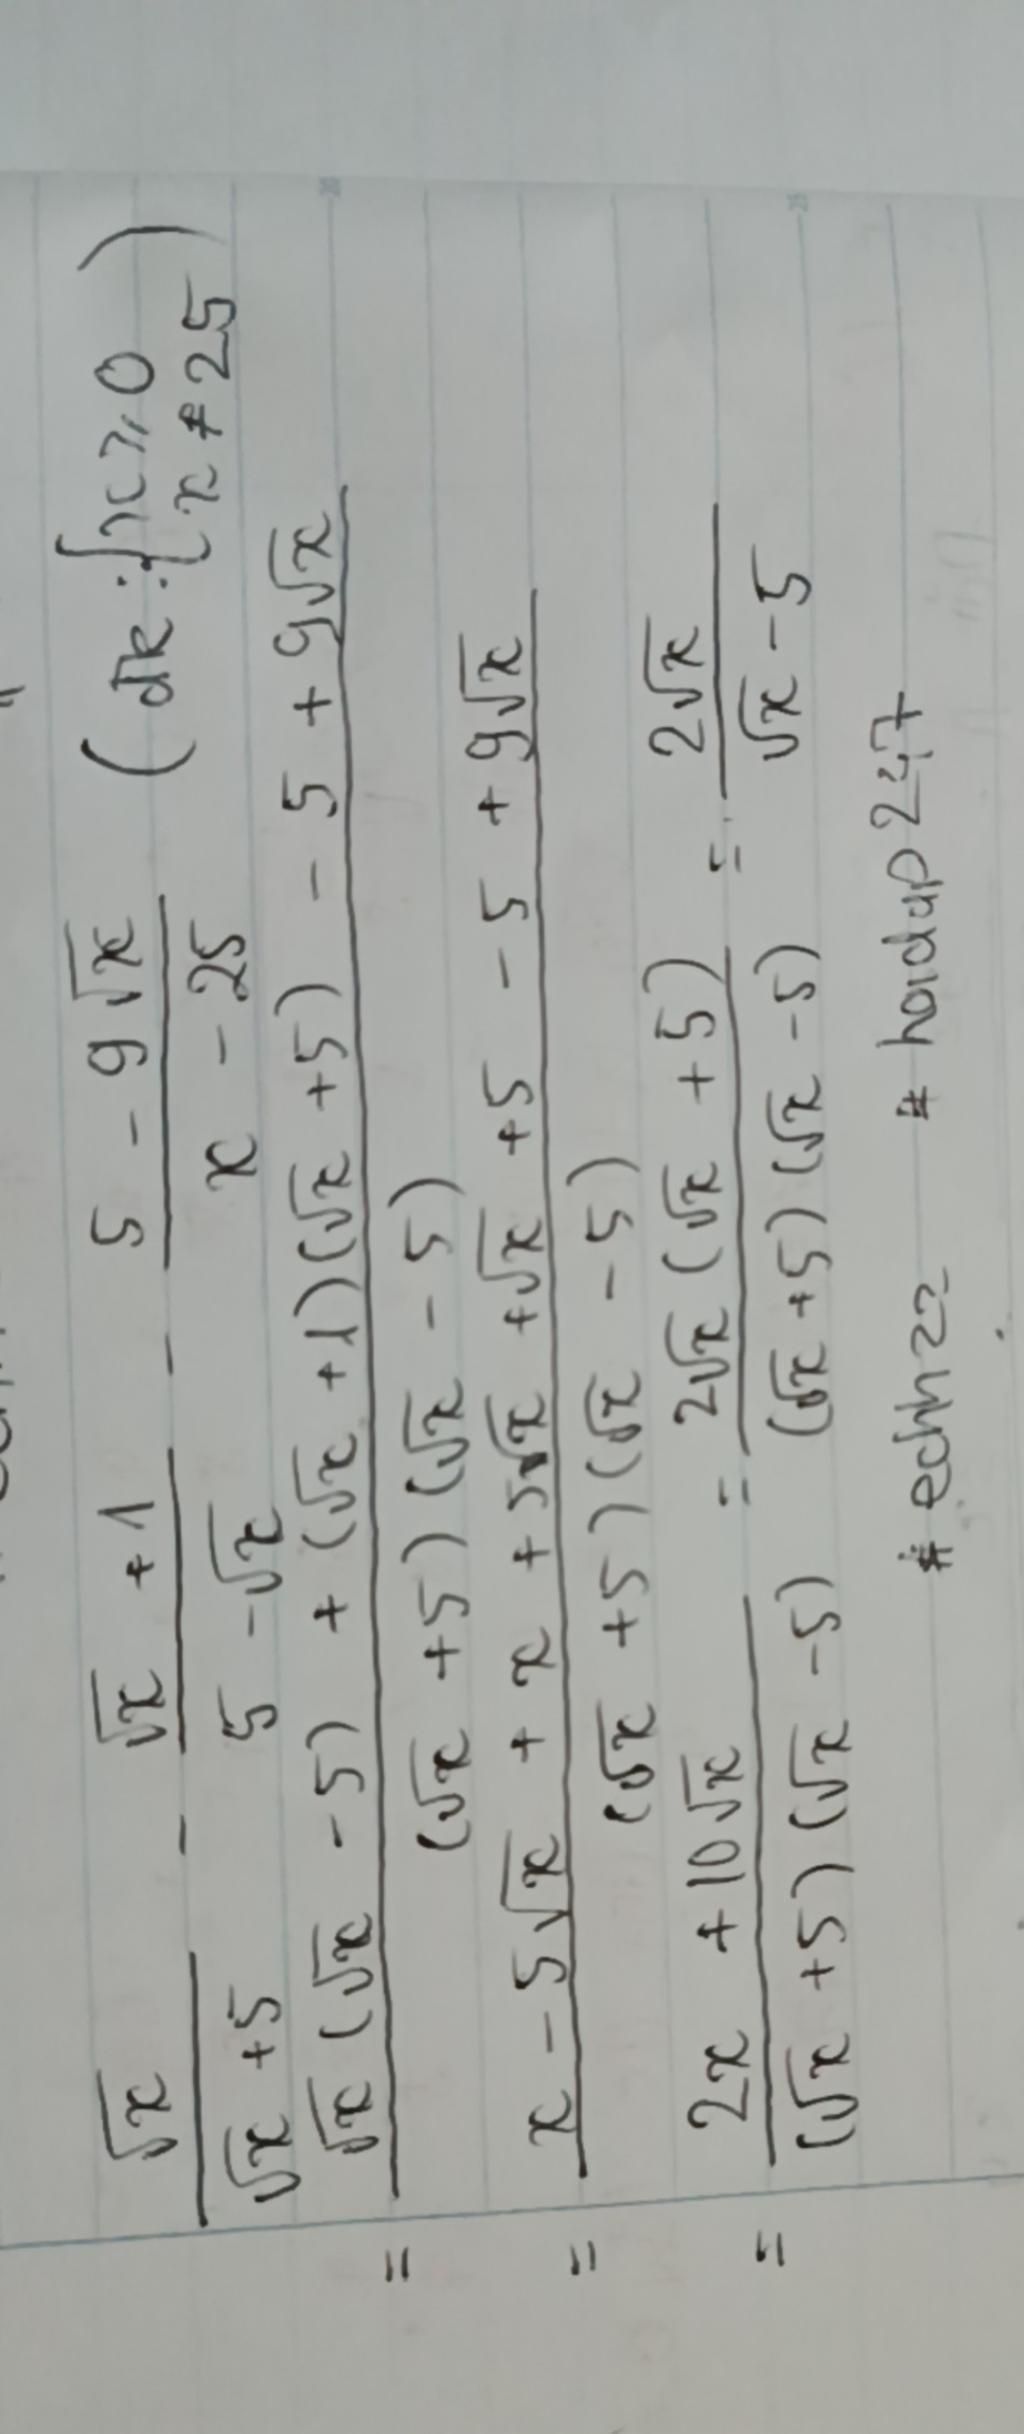 √x / (√x +5) - (√x +1) / (5 - √x) - (5 - 9√x) / (x - 25) (đk: { x ≥ 0
x ≠ 25 )
= (√x (√x - 5) + (√x +1)(√x +5) - 5 + 9√x) / ((√x +5)(√x - 5))
= (x - 5√x + x + 5√x +√x +5 - 5 + 9√x) / ((√x +5)(√x - 5))
= (2x + 10√x) / ((√x +5)(√x -5)) = (2√x (√x + 5)) / ((√x +5)(√x -5)) = 2√x / (√x - 5)
# hoidap247